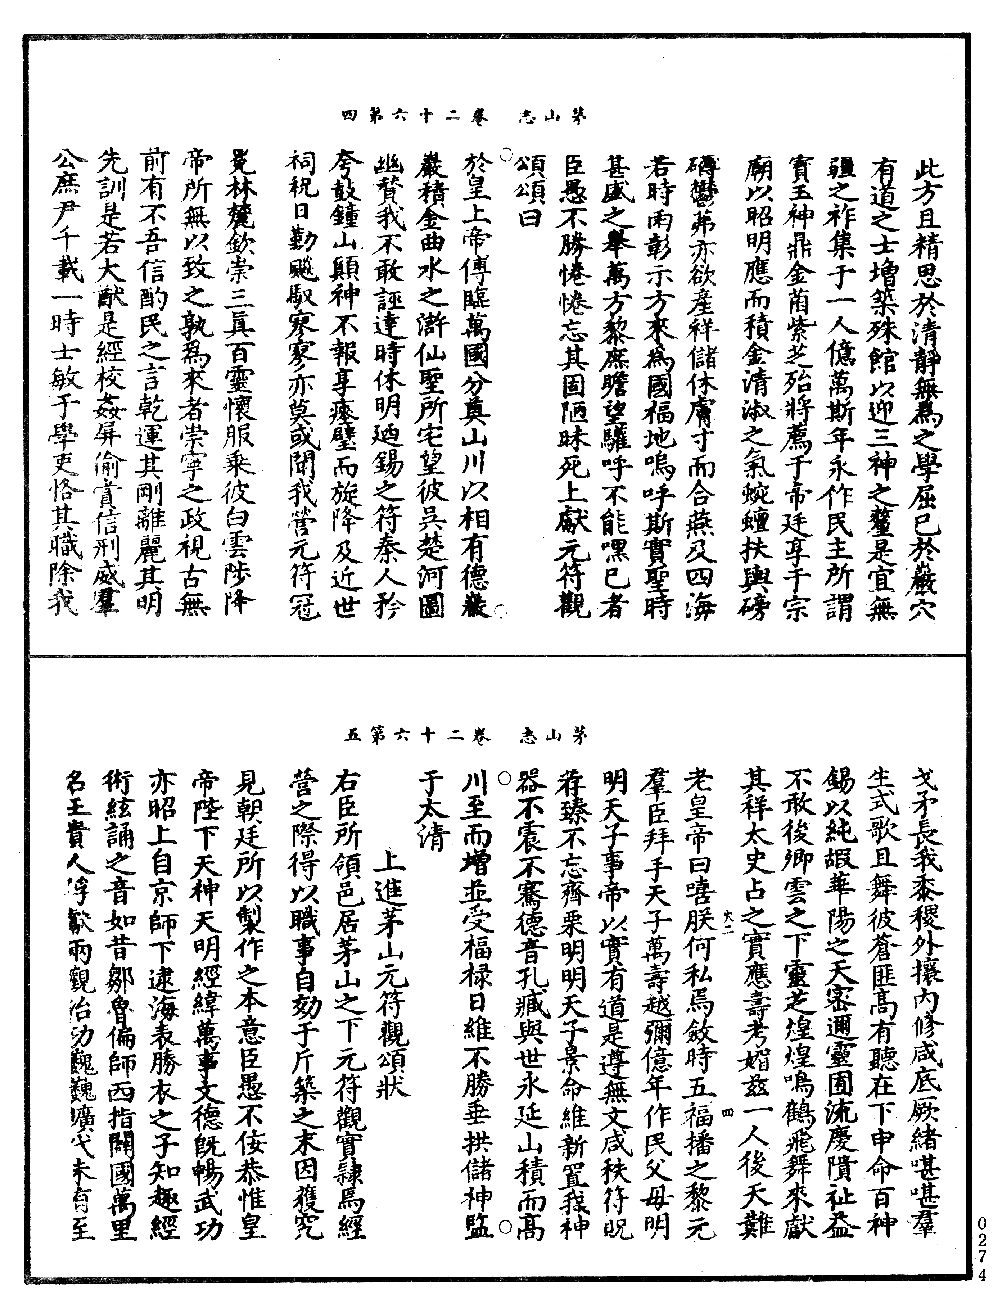 茅山志　卷二十六第四
此方且精思於清靜無為之學屈已於巖穴
有道之士增築殊館以迎三神之釐是宜無
疆之祚集于一人億萬斯年永作民主所謂
寶玉神鼎金菌紫芝殆將薦于帝廷享于宗
廟以昭明應而積金清淑之氣蜿蟺扶輿磅
礴鬱茀亦欲産祥儲休膚寸而合燕及四海
若時雨彰示方來為國福地嗚呼斯實聖時
甚盛之舉萬方黎庶瞻望驩呼不能嘿已者
臣愚不勝惓惓忘其固陋昧死上獻元符觀
頌頌曰
於皇上帝傅臨萬國分奠山川以相有德巖
巖積金曲水之滸仙聖所宅望彼吳楚河圖
幽賛我不敢誣逹時休明廼錫之符秦人矜
夸鼓鐘山顛神不報享瘞璧而旋降及近世
祠祝日勤飈馭寥寥亦莫或聞我營元符冠
冕林麓欽崇三真百靈懷服乘彼白雲陟降
帝所無以致之孰為來者崇寧之政視古無
前有不吾信酌民之言乾運其剛離麗其明
先訓是若大猷是經校姦屏偷賞信刑威羣
公庶尹千載一時士敏于學吏恪其職除我
茅山志　卷二十六第五
戈矛長我黍稷外攘內修咸底厥緒堪堪羣
生式歌且舞彼蒼匪高有聽在下申命百神
錫以純嘏華陽之天密邇靈囿流慶隤祉益
不敢後卿雲之下靈芝煌煌鳴鶴飛舞來獻
其祥太史占之實應壽考媚茲一人後天難
老皇帝曰嘻朕何私焉斂時五福播之黎元
羣臣拜手天子萬壽越彌億年作民父母明
明天子事帝以實有道是遵無文咸秩符貺
荐臻不忘齊栗明明天子景命維新置我神
器不震不騫德音孔臧與世永延山積而高
川至而增並受福祿日維不勝垂拱儲神監
于太清
上進茅山元符觀頌狀
右臣所領邑居茅山之下元符觀實隸焉經
營之際得以職事自効于斤築之末因獲究
見朝廷所以製作之本意臣愚不佞恭惟皇
帝陛下天神天明經緯萬事文德旣暢武功
亦昭上自京師下逮海表勝衣之子知趣經
術絃誦之音如昔鄒魯偏師西指闢國萬里
名王貴人俘馘兩觀治功巍巍曠代未有至
0274